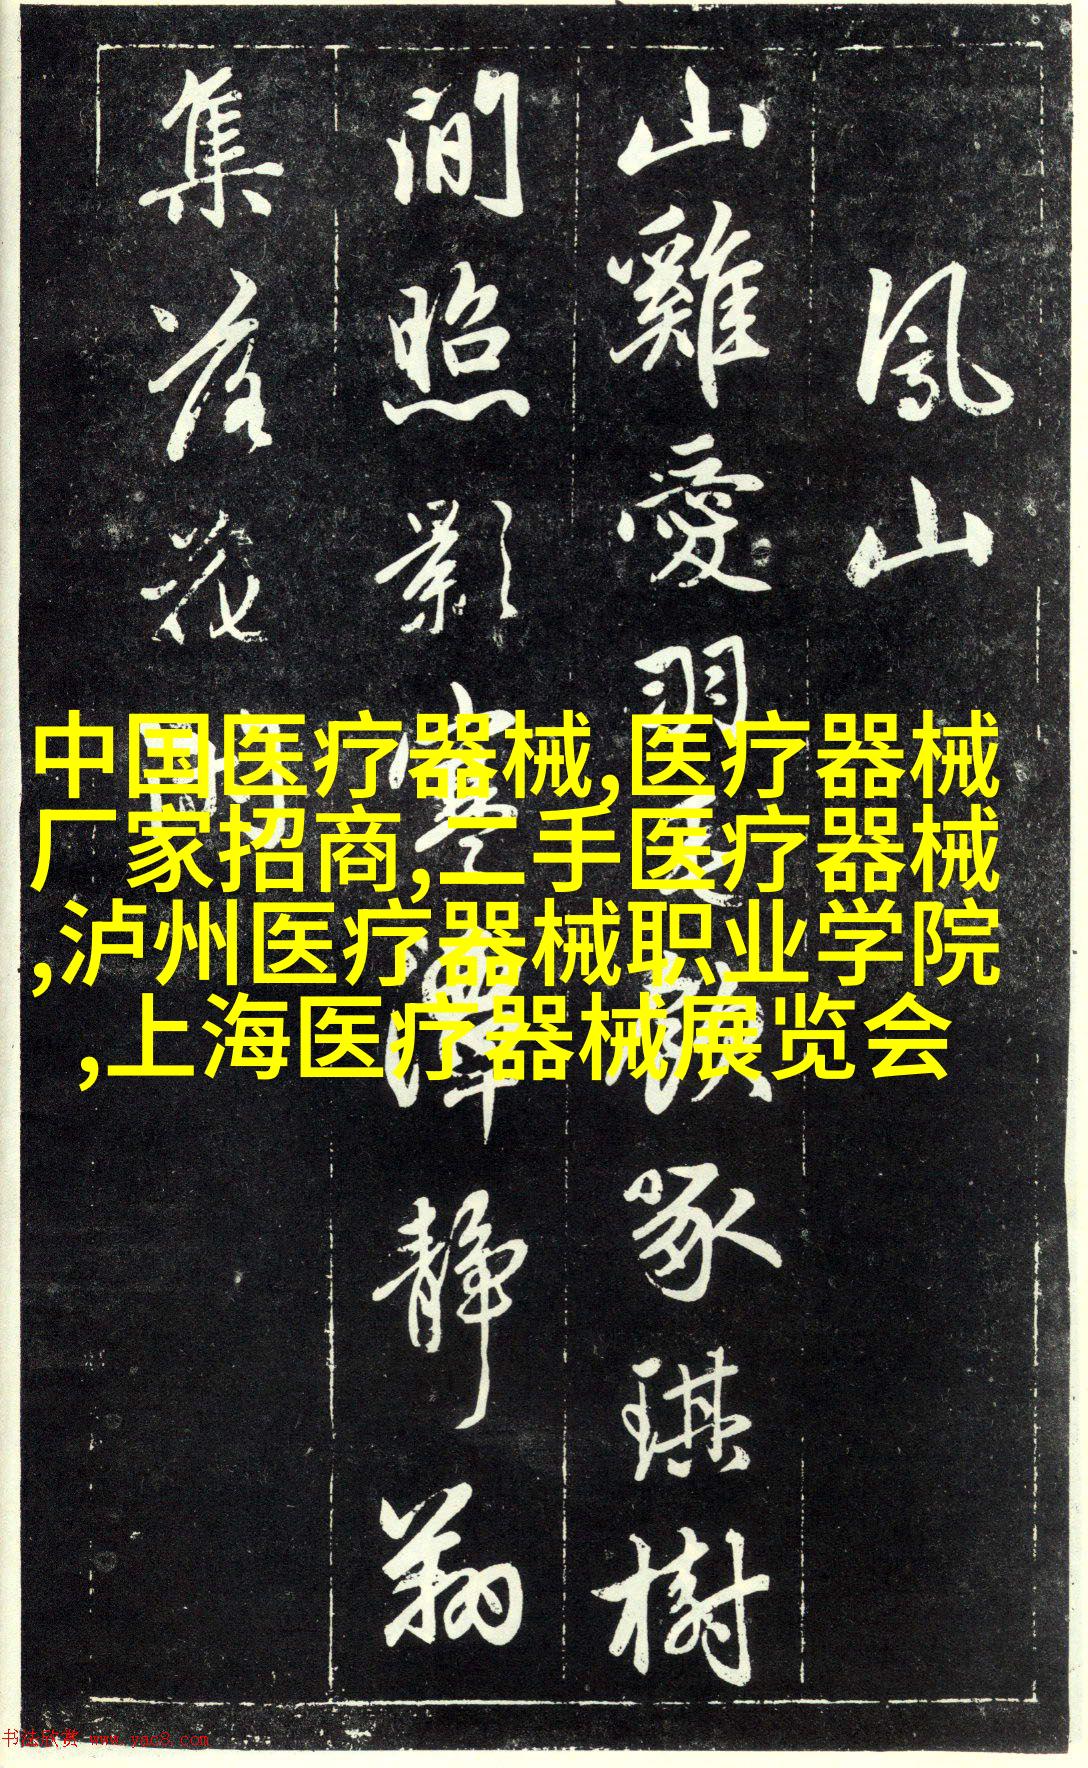 鳳山
山雞愛羽啄琪樹
間照影寒潭靜翔
集落花
中国医疗器械,医疗器械
厂家招商,二手医疗器械
,泸州医疗器械职业学院
,上海医疗器械展览会
书法欣赏 www.yac8.com